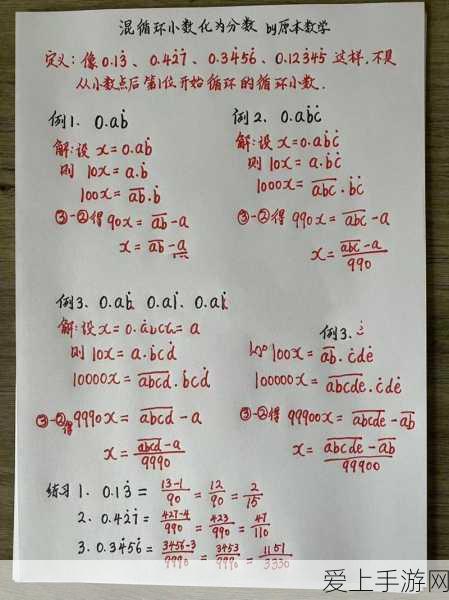 混循环小数化为分数 by原本数学
定义：像0.13̇、0.42̇7̇、0.3456̇、0.12345̇ 这样，不是
从小数点后第1位开始循环的循环小数.
例1、0.aḃ
解：设 x=0.aḃ
则 10x=a.ḃ
100x=a̅b̅.ḃ
③-②得 90x=a̅b̅-a
x=a̅b̅-a
例2、0.aḃċ
解：设 x=0.aḃċ
则 10x=a.ḃċ
1000x=a̅b̅c̅.ḃċ
③-②得 990x=a̅b̅c̅-a
x=(a̅b̅c̅-a)/990
例3、
解：设x=
则 10x=a.ḃcḋ
10000x=a̅b̅c̅d̅.ḃcḋ
③-②得 9990x=a̅b̅c̅d̅-a
x=(a̅b̅c̅d̅-a)/9990
例3.
100x=a̅b̅.ċdė
100000x=a̅b̅c̅d̅e̅.ċdė
③-②得 99900x=a̅b̅c̅d̅e̅-a̅b̅
x=(a̅b̅c̅d̅e̅-a̅b̅)/99900
练习 1、0.13̇=(13-1)/90=12/90=2/15
2、0.42̇7̇=(427-4)/990=423/990=47/110
3、0.34̇56̇=(3456-3)/9990=3453/9990=1151/3330
爱上手游网